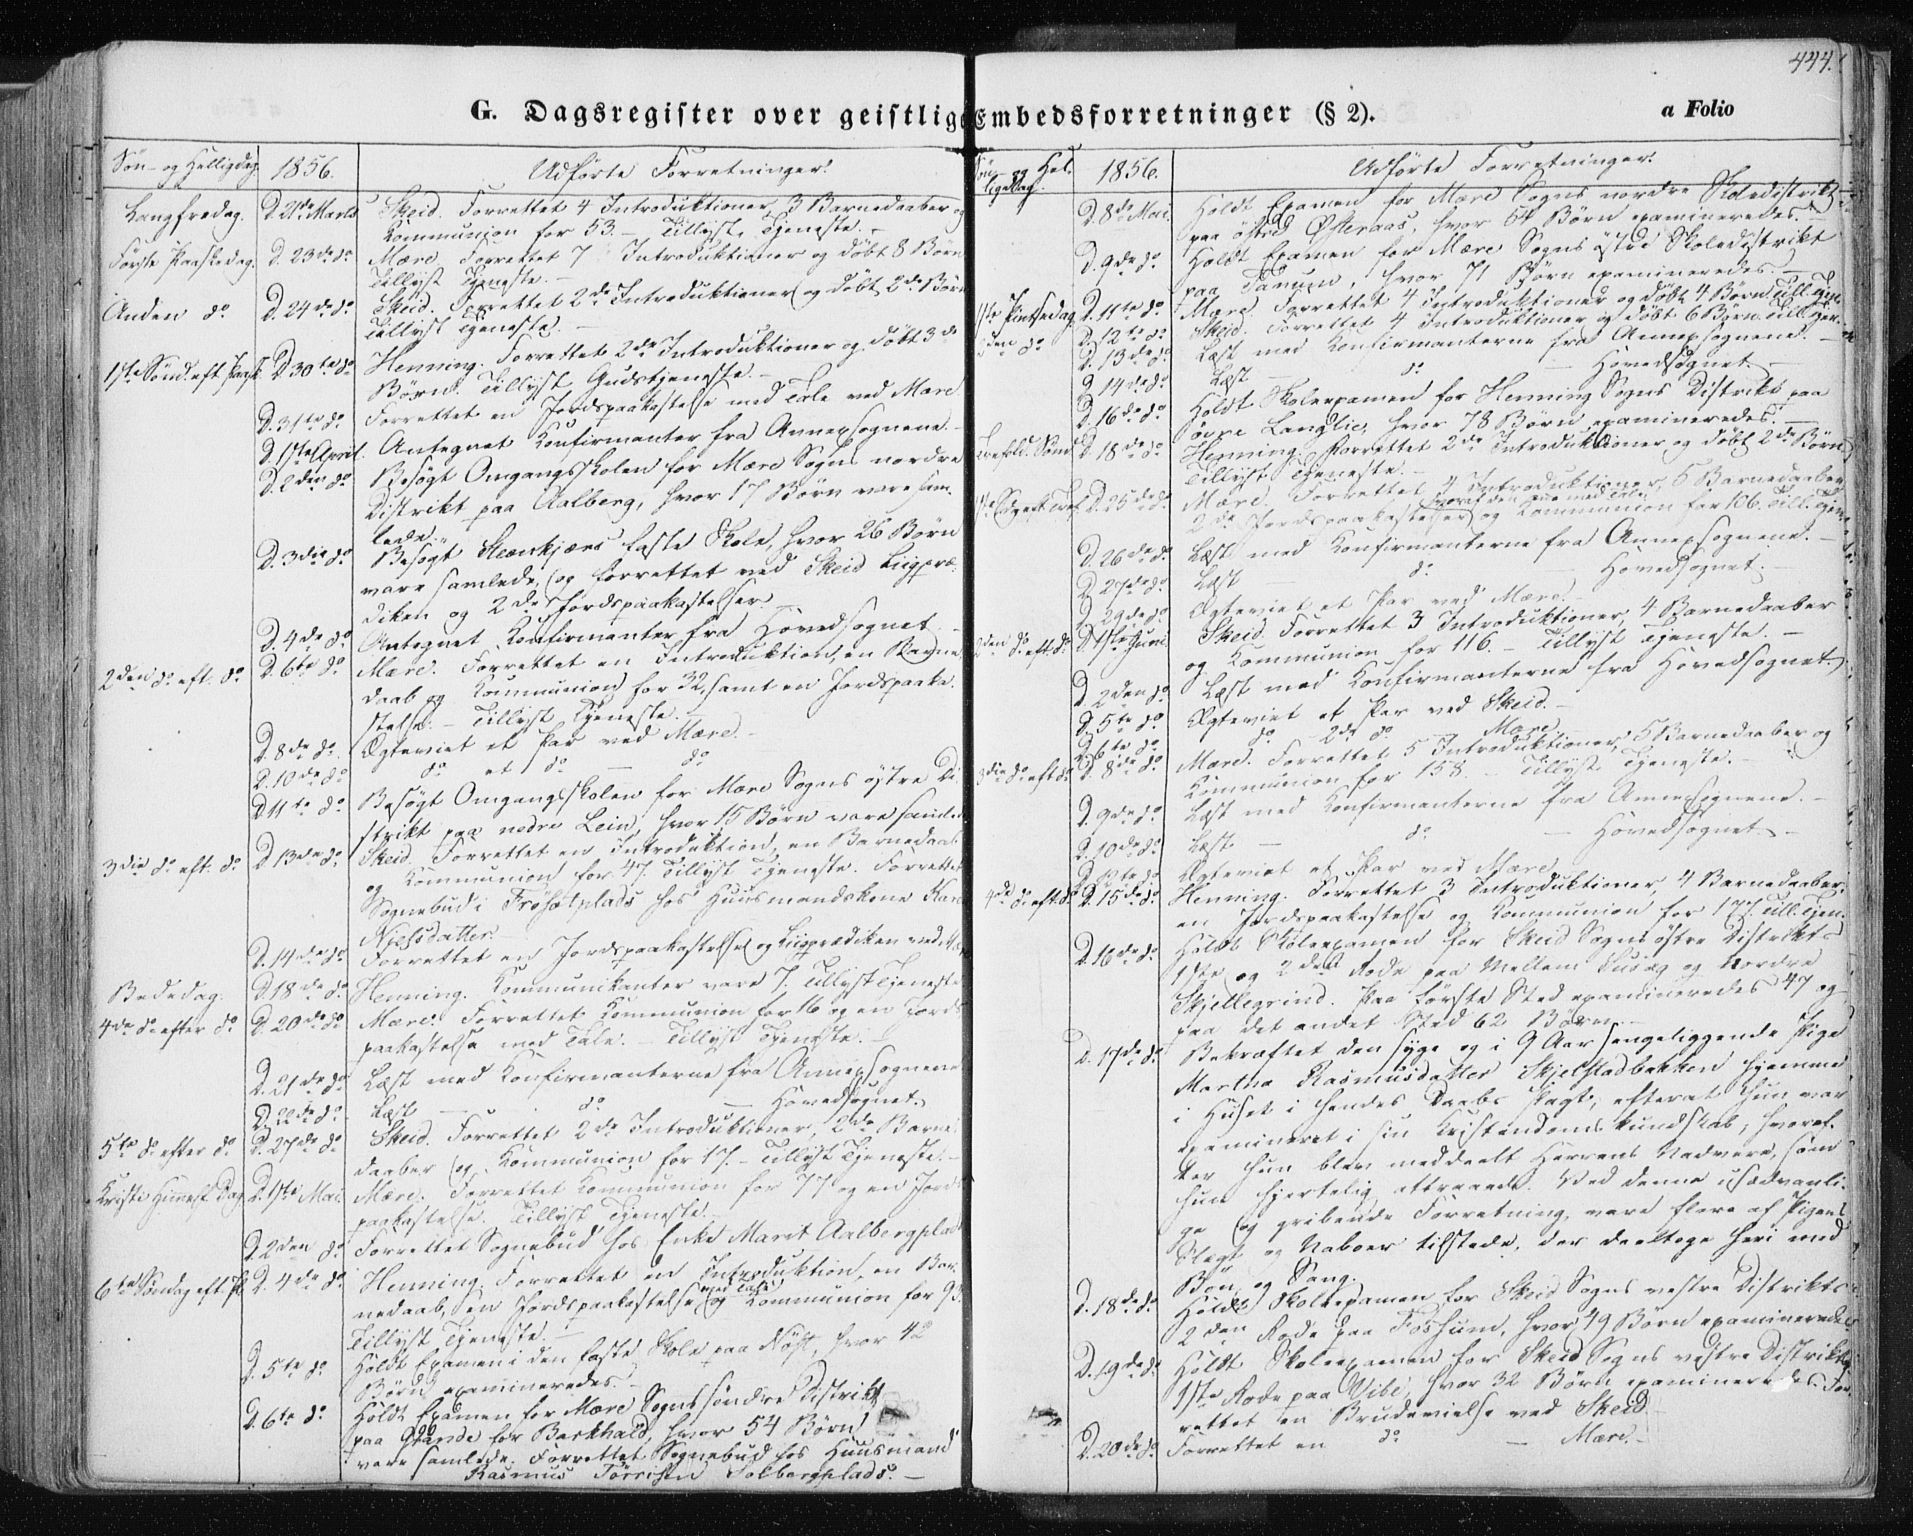 444.
G. Dagsregister over geistlige Embedsforretninger (§ 2).
a Folio
Søn- og Helligdag. 1856. Udførte Forretninger.
Langfredag. D. 21de Marts Skeid. Forrettet 4 Introduktioner, 3 Barnedaaber og
Kommunion for 53. – Tillyst Tjeneste. –
Første Paaskedag. D. 23de do Mære. Forrettet 7 Introduktioner og døbt 8 Børn
Tillyst Tjeneste. –
Anden do D. 24de do Skeid. Forrettet 2de Introduktioner og døbt 2de Børn
Tillyst Tjeneste. –
1ste Sønd. eft. Paask. D. 30te do Henning. Forrettet 2de Introduktioner og døbt 3de
Børn. Tillyst Gudstjeneste. –
D. 31te do Forrettet en Jordspaakastelse med Tale ved Mære
D. 1ste April. Antegnet Konfirmanter fra Annexsognene. –
D. 2den do Besøgt Omgangsskolen for Mære Sogns nordre
Distrikt paa Aalberg, hvor 17 Børn vare sam-
lede. –
D. 3die do Besøgt Steenkjærs faste Skole, hvor 26 Børn
vare samlede, og forrettet ved Skeid Liigpræ-
diken og 2de Jordspaakastelser. –
D. 4de do Antegnet Konfirmanter fra Hovedsognet. –
2den do eft. do D. 6te do Mære. Forrettet en Introduktion, en Barne-
daab og Kommunion for 32, samt en Jordspaaka-
stelse. – Tillyst Tjeneste. –
D. 8de do Ægteviet et Par ved Mære. –
D. 10de do do et do – do
D. 11te do Besøgt Omgangsskolen for Mære Sogns østre Di-
strikt paa nedre Lein, hvor 15 Børn vare samlede
3die do eft. do D. 13de do Skeid. Forrettet en Introduktion, en Barnedaab
og Kommunion for 47. Tillyst Tjeneste. Forrettet
Sognebud i Frøsetplads hos Huusmandskone Karen
Nielsdatter.
D. 14de do Forrettet en Jordspaakastelse og Liigprædiken ved Mære
Bededag. D. 18de do Henning. Kommunikanter vare 7. Tillyst Tjeneste
4de do efter do D. 20de do Mære. Forrettet Kommunion for 16 og en Jords-
paakastelse med Tale. – Tillyst Tjeneste. –
D. 21de do Læst med Konfirmanterne fra Annexsognene
D. 22de do Læst – do – Hovedsognet.
5te do efter do D. 27de do Skeid. Forrettet 2de Introduktioner, 2de Barne-
daaber og Kommunion for 17. – Tillyst Tjeneste. –
Kristi Himmelf. Dag. D. 1ste Mai. Mære. Forrettet Kommunion for 77 og en Jords-
paakastelse. Tillyst Tjeneste. –
D. 2den do Forrettet Sognebud hos Enke Marit Aalbergplads
6te Søndag eft. P. D. 4de do Henning. Forrettet en Introduktion, en Bar-
nedaab, en Jordspaakastelse med Tale og Kommunion for 93.
Tillyst Tjeneste. –
D. 5te do Holdt Examen i den faste Skole paa Nøst, hvor 42
Børn examineredes. –
D. 6te do Holdt Examen for Mære Sogns søndre Distrikt
paa Stande for Barkhald, hvor 54 Børn
vare samlede. Forrettet Sognebud hos Huusmand
Rasmus Tørrisen Solbergplads. –
Søn- og Hel-
ligedag. 1856. Udførte Forretninger.
D. 8de Mai. Holdt Examen for Mære Sogns nordre Skoledistrikt
paa Østeraas, hvor 64 Børn examineredes. –
D. 9de do Holdt Examen for Mære Sogns østre Skoledistrikt
paa Tanum, hvor 71 Børn examineredes. –
1ste Pintsedag D. 11te do Mære. Forrettet 4 Introduktioner og døbt 4 Børn. Till. Tjen.
2den do D. 12te do Skeid. Forrettet 4 Introduktioner og døbt 6 Børn. Till. Tjen.
D. 13de do Læst med Konfirmanterne fra Annexsognene. –
D. 14de do Læst – do – Hovedsognet. –
D. 16de do Holdt Skoleexamen for Henning Sogns Distrikt paa
øvre Langlie, hvor 78 Børn examineredes. –
Trefold. Sønd. D. 18de do Henning. Forrettet 2de Introduktioner og døbt 2de Børn
Tillyst Tjeneste. –
1ste S. eft. Tref. D. 25de do Mære. Forrettet 4 Introduktioner, 5 Barnedaaber
2de Jordspaakastelser hvoraf den ene med Tale og Kommunion for 106. Till. Tjen.
D. 26de do Læst med Konfirmanterne fra Annexsognene. –
D. 27de do Læst – do – Hovedsognet. –
D. 29de do Ægteviet et Par ved Mære.
2den do eft. do D. 1ste Juni. Skeid. Forrettet 3 Introduktioner, 4 Barnedaaber
og Kommunion for 116. – Tillyst Tjeneste. –
D. 2den do Læst med Konfirmanterne fra Hovedsognet.
D. 5te do Ægteviet et Par ved Skeid. –
D. 6te do do 2de do Mære.
3die do eft. do D. 8de do Mære. Forrettet 5 Introduktioner, 5 Barnedaaber og
Kommunion for 158. – Tillyst Tjeneste. –
D. 9de do Læst med Konfirmanterne fra Annexsognene. –
D. 10de do Læst – do – Hovedsognet. –
D. 12te do Ægteviet et Par ved Mære.
4de do eft. do D. 15de do Henning. Forrettet 3 Introduktioner, 4 Barnedaaber,
en Jordspaakastelse og Kommunion for 177. Till. Tjen.
D. 16de do Holdt Skoleexamen for Skeid Sogns østre Distrikts
1ste og 2den Rode paa Mellem Kusag og Nordre
Skjellegrind. Paa første Sted examineredes 47 og
paa det andet Sted 62 Børn. –
D. 17de do Bekræftet den syge og i 9 Aar sengeliggende Pige
Martha Rasmusdatter Skjelstadbakken hjemme
i Huset i hendes Daabs Pagt, efterat hun var
examineret i sin Kristendomskundskab, hvoref-
ter hun blev meddeelt Herrens Nadvere, som
hun hjertelig attraaede. Ved denne usædvanli-
ge og gribende Forretning vare flere af Pigens
Slægt og Naboer tilstede, der deeltoge heri med
Bøn og Sang.
D. 18de do Holdt Skoleexamen for Skeid Sogns vestre Distrikts
2den Rode paa Fossum, hvor 49 Børn examineredes
D. 19de do Holdt Skoleexamen for Skeid Sogns vestre Distrikts
1ste Rode paa Vibe, hvor 32 Børn examineredes. For-
rettet en Brudevielse ved Skeid
D. 20de do Forrettet en do – Mære. –